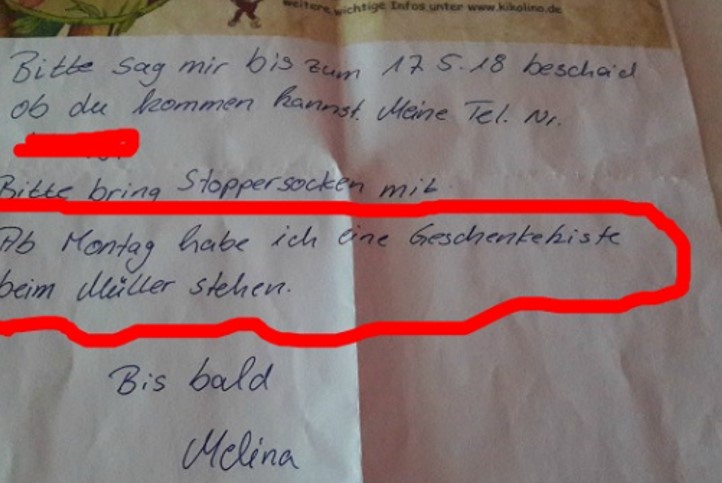 weitere wichtige Infos unter www.kikolino.de
Bitte sag mir bis zum 17.5.18 bescheid
ob du kommen kannst. Meine Tel. Nr.
Bitte bring Stoppersocken mit.
Ab Montag habe ich eine Geschenkekiste
beim Müller stehen.
Bis bald
Melina